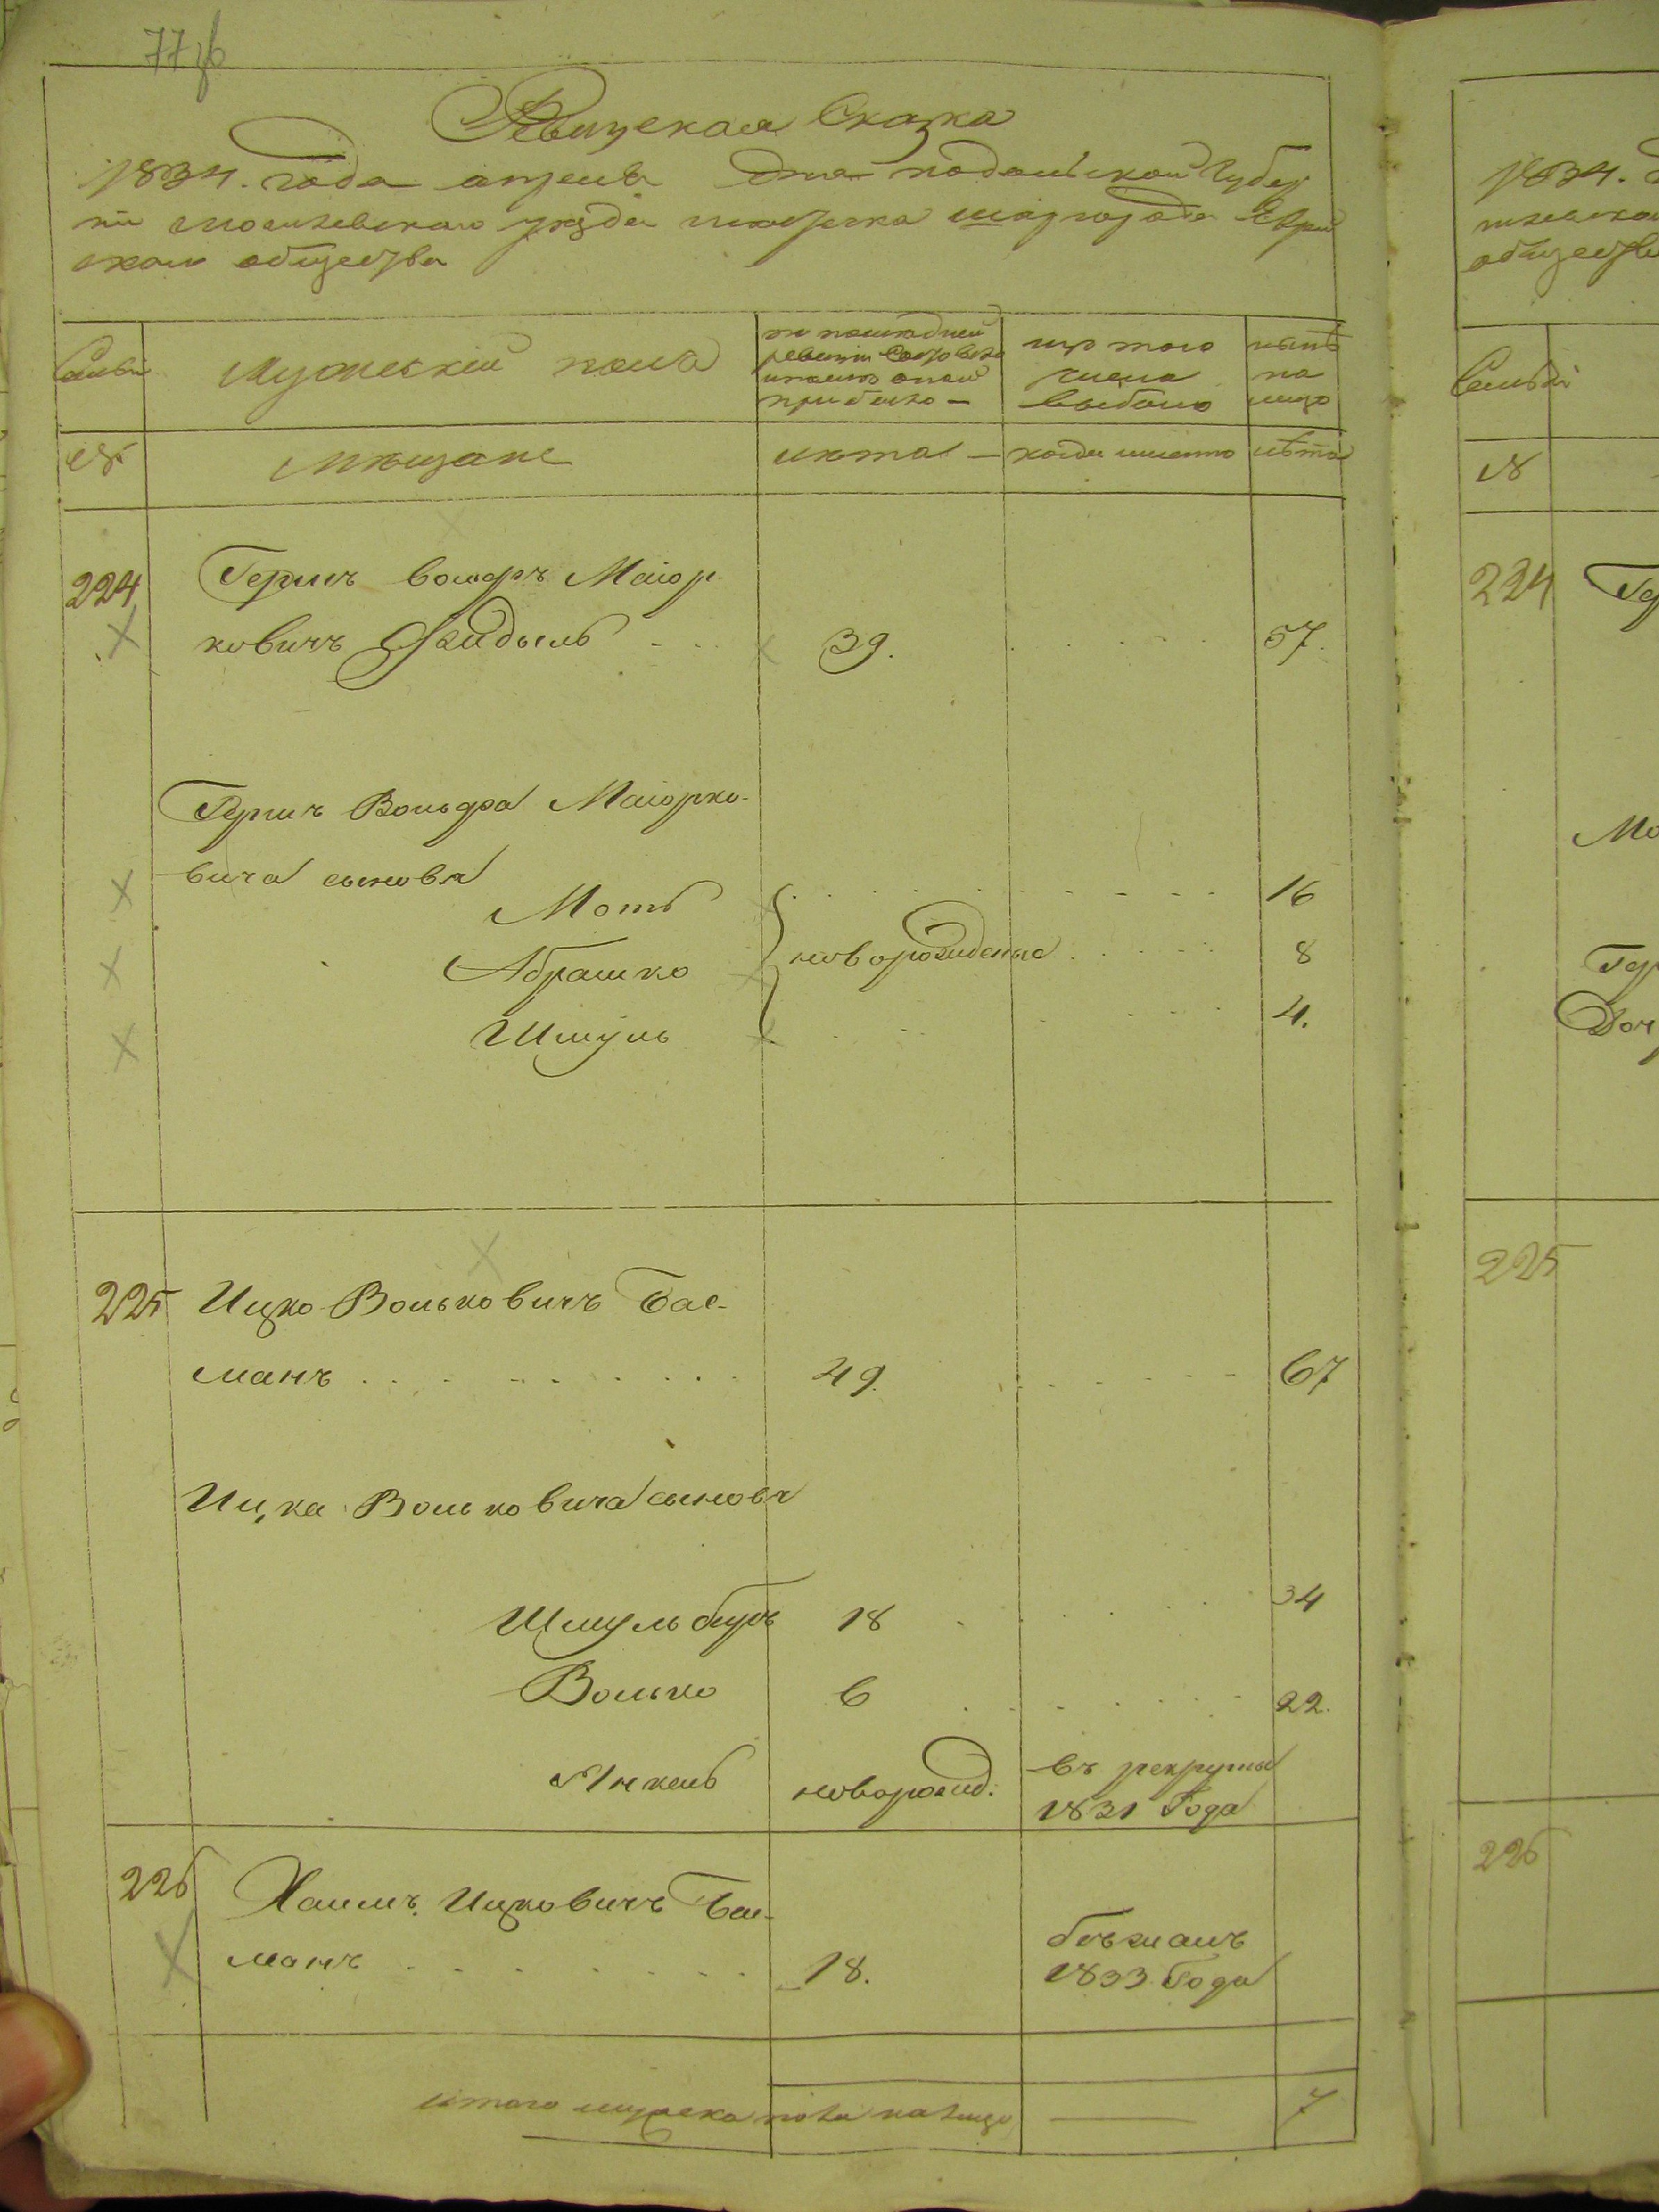 77
Ревизская Сказка
1834. года апреля дня подольской Губер
нии могилевскаго уезда местечка шаргорода Еврей
скаго общества
Семьи
Мужескій полъ
по последней
ревизіи состояло
и после оной
прибыло —
изъ того
числа
выбыло
ныне
на
лицо
№
Мещане
лета —
когда именно
лета
224
Гершъ Вольфъ Маіор
ковичъ
39.
57.
Герша Вольфа Маіорко-
вича сыновя
Мотъ
16
Абрашко
новорожденые
8
Шмуль
4.
225 Ицко Вольковичъ Бас-
манъ
49.
67
Ицка Вольковича сыновя
Шмуль беръ 18
34
Волько 6
22.
Янкель новорожд:
въ рекруты
1831 Года
226
Хаимъ Ицковичъ Бас-
манъ
18.
бежалъ
1833 Года
итого мужеска пола налицо — 7
1834.
общества
Семьи
№
224
225
226